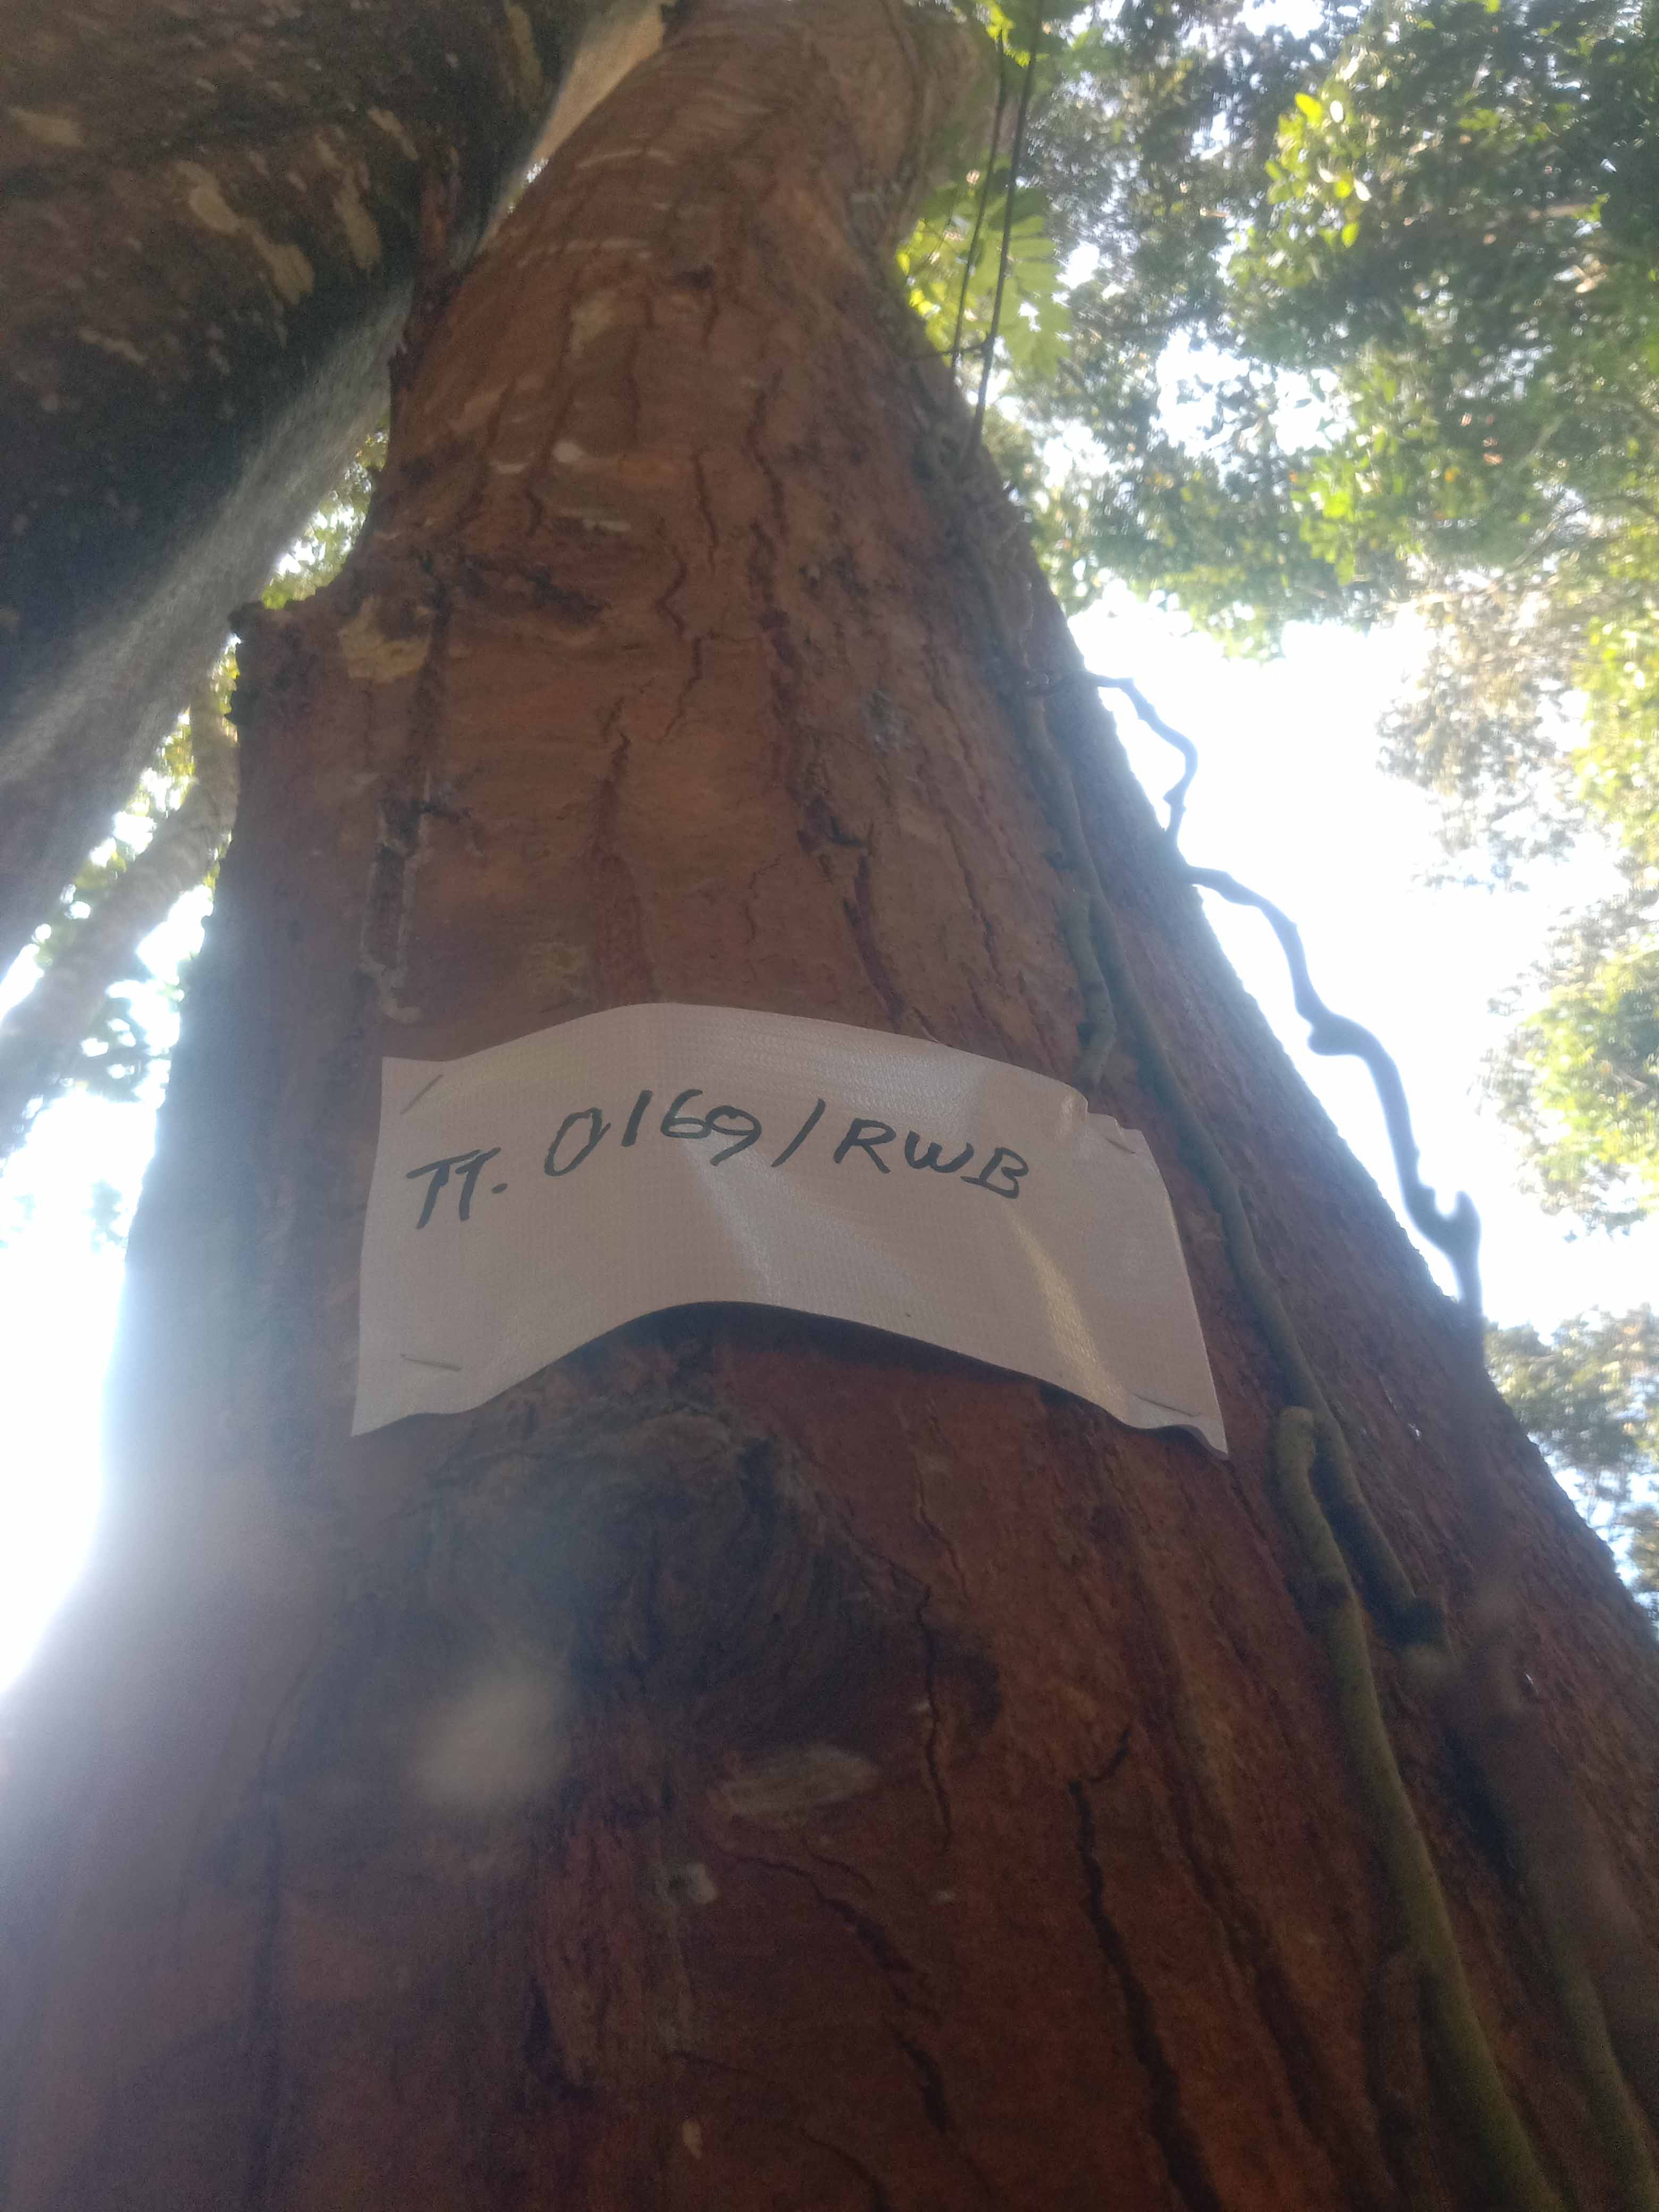 TT. 0169/RWB